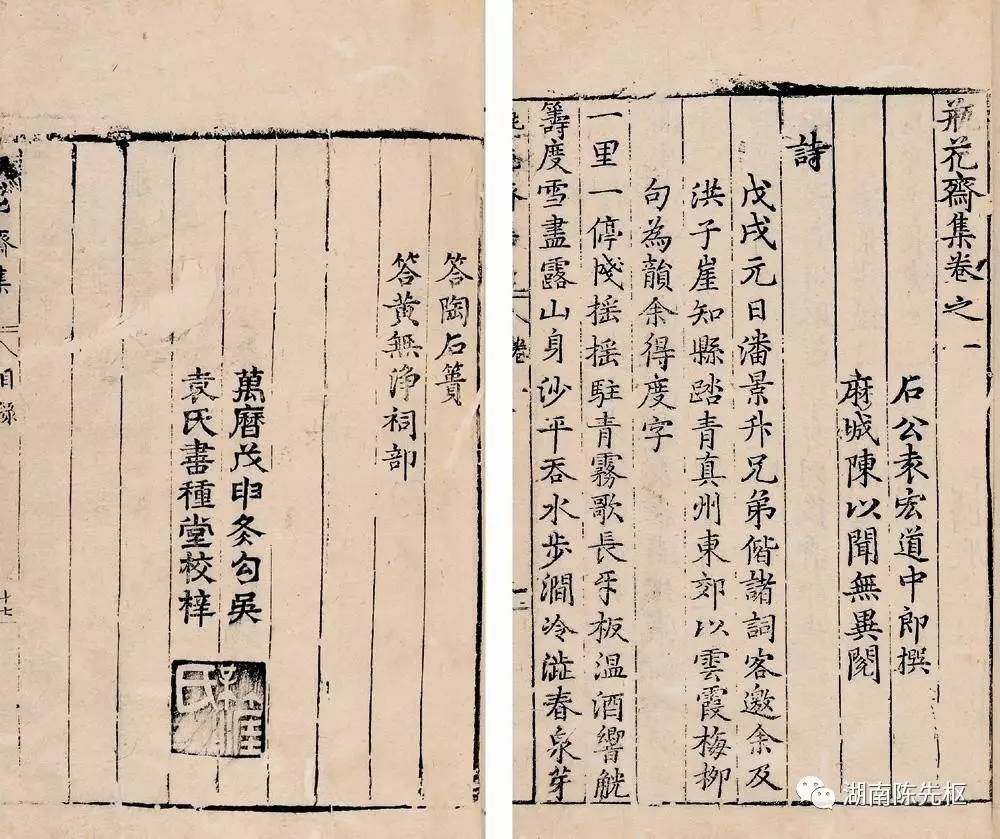 瓶花齋集卷之一
石公袁宏道中郎撰
麻城陳以聞無異閱
詩
戊戌元日潘景升兄弟偕諸詞客邀余及
洪子崖知縣踏青真州東郊以雲霞梅柳
句為韻余得度字
一里一停㦮搖搖駐青霧歌長牙板溫酒響觥
籌度雪盡露山身沙平吞水步澗冷澁春泉芽
答陶石簣
答黄無淨祠部
萬曆戊申冬勾吳
袁氏書種堂校梓
花齋集
目錄
十七
湖南陈先枢